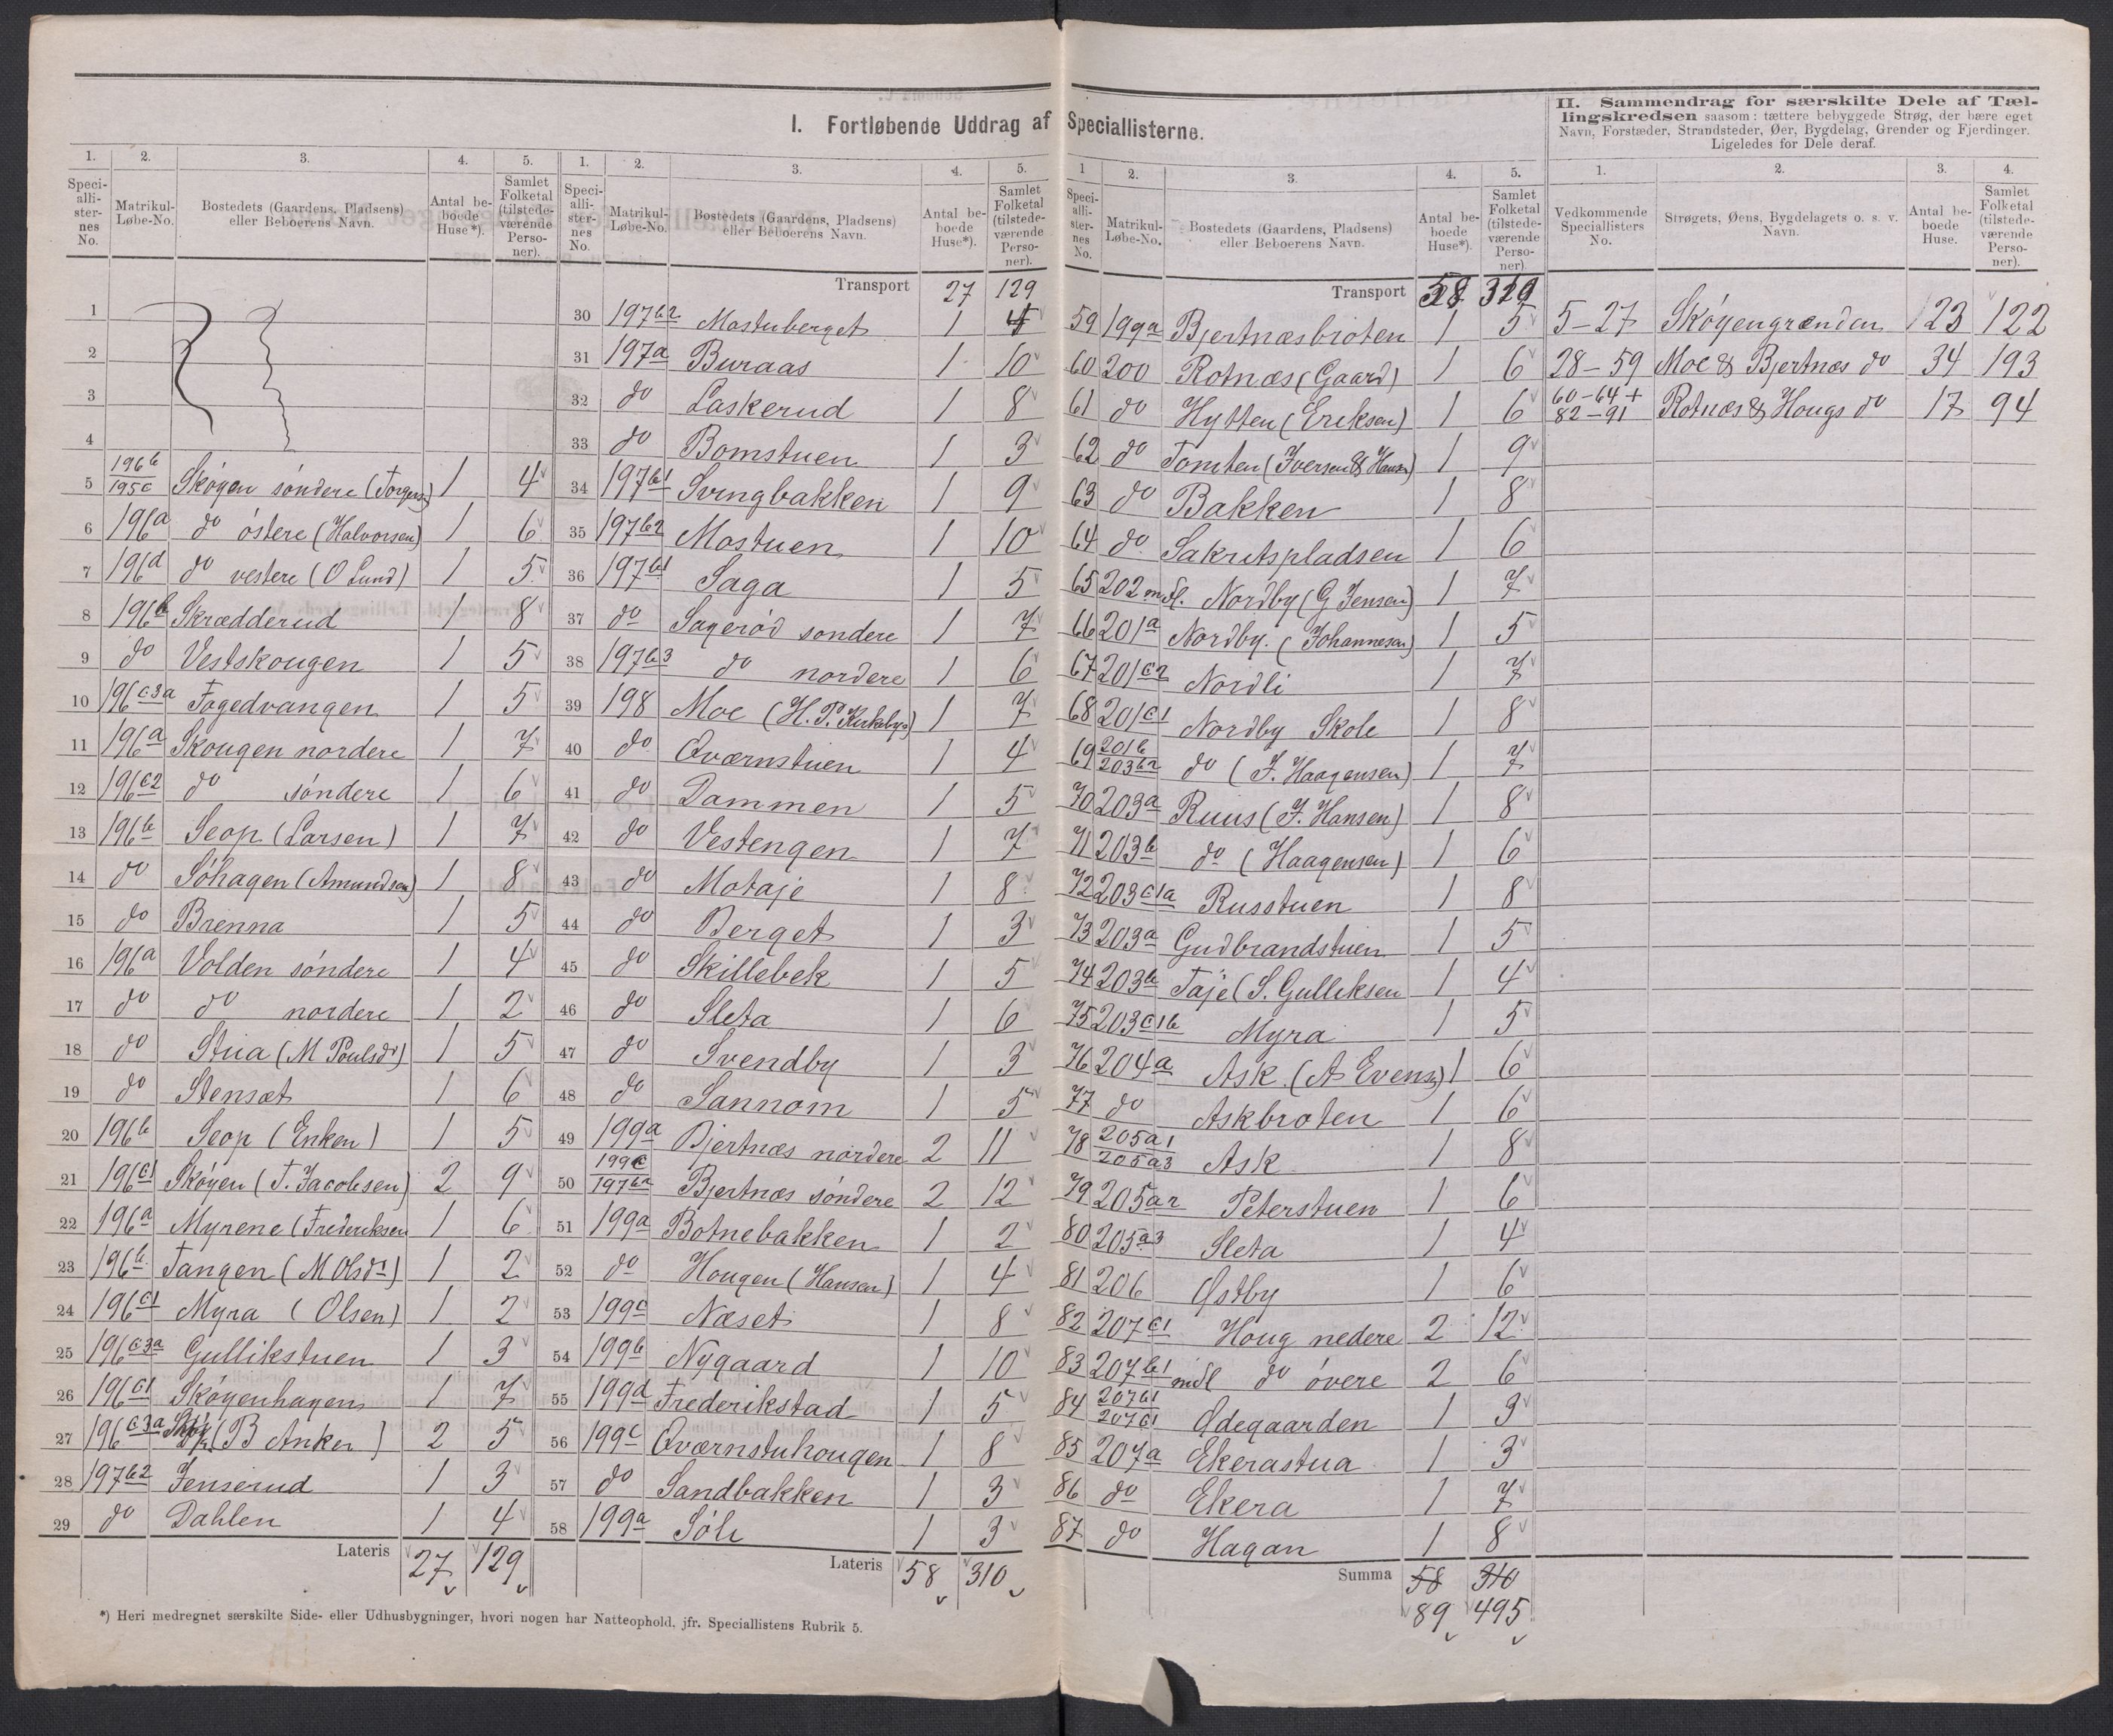 I. Fortløbende Uddrag af Speciallisterne.
II. Sammendrag for særskilte Dele af Tællingskredsen saasom: tættere bebyggede Strøg, der bære eget
Navn, Forstæder, Strandsteder, Øer, Bygdelag, Grender og Fjerdinger.
Ligeledes for Dele deraf.
1. 2. 3. 4. 5.
Speciallisternes No. Matrikul-Løbe-No. Bostedets (Gaardens, Pladsens) eller Beboerens Navn. Antal beboede Huse*). Samlet Folketal (tilstedeværende Personer).
1
2
3
4
5 196b 195c Skøyen søndere (Torgers) 1 4
6 196a do østere (Halvorsen) 1 6
7 196d do vestere (O Lund) 1 5
8 196b Skrædderud 1 8
9 do Vestskougen 1 5
10 196c3a Fogedvangen 1 5
11 196a Skougen nordere 1 7
12 196c2 do søndere 1 6
13 196b Seop (Larsen) 1 7
14 do Søhagen (Amundsen) 1 8
15 do Brenna 1 5
16 196a Volden søndere 1 4
17 do do nordere 1 2
18 do Stua (M Poulsdr) 1 5
19 do Stensæt 1 6
20 196b Seop (Enken) 1 5
21 196c1 Skøyen (T. Jacobsen) 2 9
22 196a Myrene (Frederiksen 1 6
23 196b Tangen (M Olsdr) 1 2
24 196c1 Myra (Olsen) 1 2
25 196c3a Gullikstuen 1 3
26 196c1 Skøyenhagen 1 7
27 196c3a (B Anker) 2 5
28 197b2 Jenserud 1 3
29 do Dahlen 1 4
Lateris 27 129
1. 2. 3. 4. 5.
Speciallisternes No. Matrikul-Løbe-No. Bostedets (Gaardens, Pladsens) eller Beboerens Navn. Antal beboede Huse*). Samlet Folketal (tilstedeværende Personer).
Transport 27 129
30 197b2 Mostuberget 1 4
31 197a Buraas 1 10
32 do Laskerud 1 8
33 do Bomstuen 1 3
34 197b1 Svingbakken 1 9
35 197b2 Mostuen 1 10
36 197b1 Saga 1 5
37 do Sagerød søndere 1 7
38 197b3 do nordere 1 6
39 198 Moe (H. P. Kirkeby) 1 7
40 do Qværnstuen 1 4
41 do Dammen 1 5
42 do Vestengen 1 7
43 do Motaje 1 8
44 do Berget 1 3
45 do Skillebek 1 5
46 do Sleta 1 6
47 do Svendby 1 3
48 do Sannom 1 5
49 199a Bjertnæs nordere 2 11
50 199c 197b2 Bjertnæs søndere 2 12
51 199a Botnebakken 1 2
52 do Hougen (Hansen) 1 4
53 199c Næset 1 8
54 199b Nygaard 1 10
55 199d Frederikstad 1 5
56 199c Qværnstuhougen 1 8
57 do Sandbakken 1 3
58 199a Søli 1 3
Lateris 58 310
*) Heri medregnet særskilte Side- eller Udhusbygninger, hvori nogen har Natteophold, jfr. Speciallistens Rubrik 5.
1 2. 3. 4. 5.
Speciallisternes No. Matrikul-Løbe-No. Bostedets (Gaardens, Pladsens) eller Beboerens Navn. Antal beboede Huse*). Samlet Folketal (tilstedeværende Personer)
Transport 58 310
59 199a Bjertnæsbroten 1 5
60 200 Rotnæs (Gaard) 1 6
61 do Hytten (Eriksen) 1 6
62 do Tomten (Iversen & Hansn) 1 9
63 do Bakken 1 8
64 do Sakritspladsen 1 6
65 202 mfl. Nordby (G Jensen) 1 7
66 201a Nordby. (Johannesen) 1 5
67 201c2 Nordli 1 7
68 201c1 Nordby Skole 1 8
69 201b 203b2 do (J. Haagensen) 1 7
70 203a Ruus (J. Hansen) 1 8
71 203b do (Haagensen) 1 6
72 203c1a Russtuen 1 8
73 203a Gudbrandstuen 1 5
74 203b Taje (S. Gulliksen 1 4
75 203c1b Myra 1 5
76 204a Ask (A Evens) 1 6
77 do Askbroten 1 6
78 205a1 205a3 Ask 1 8
79 205a2 Peterstuen 1 6
80 205a3 Sleta 1 4
81 206 Østby 1 6
82 207c1 Houg nedere 2 12
83 207b1 mfl do øvere 2 6
84 207b1 207c1 Ødegaarden 1 3
85 207a Ekerastua 1 3
86 do Ekera 1 7
87 do Hagan 1 8
Summa 58 310
89 495
1. 2. 3. 4.
Vedkommende Speciallisters No. Strøgets, Øens, Bygdelagets o. s. v. Navn. Antal beboede Huse. Samlet Folketal (tilstedeværende Personer).
5-27 Skøyengrænden 23 122
28-59 Moe & Bjertnæs do 34 193
60-64+ 82-91 Rotnæs & Hougs do 17 94